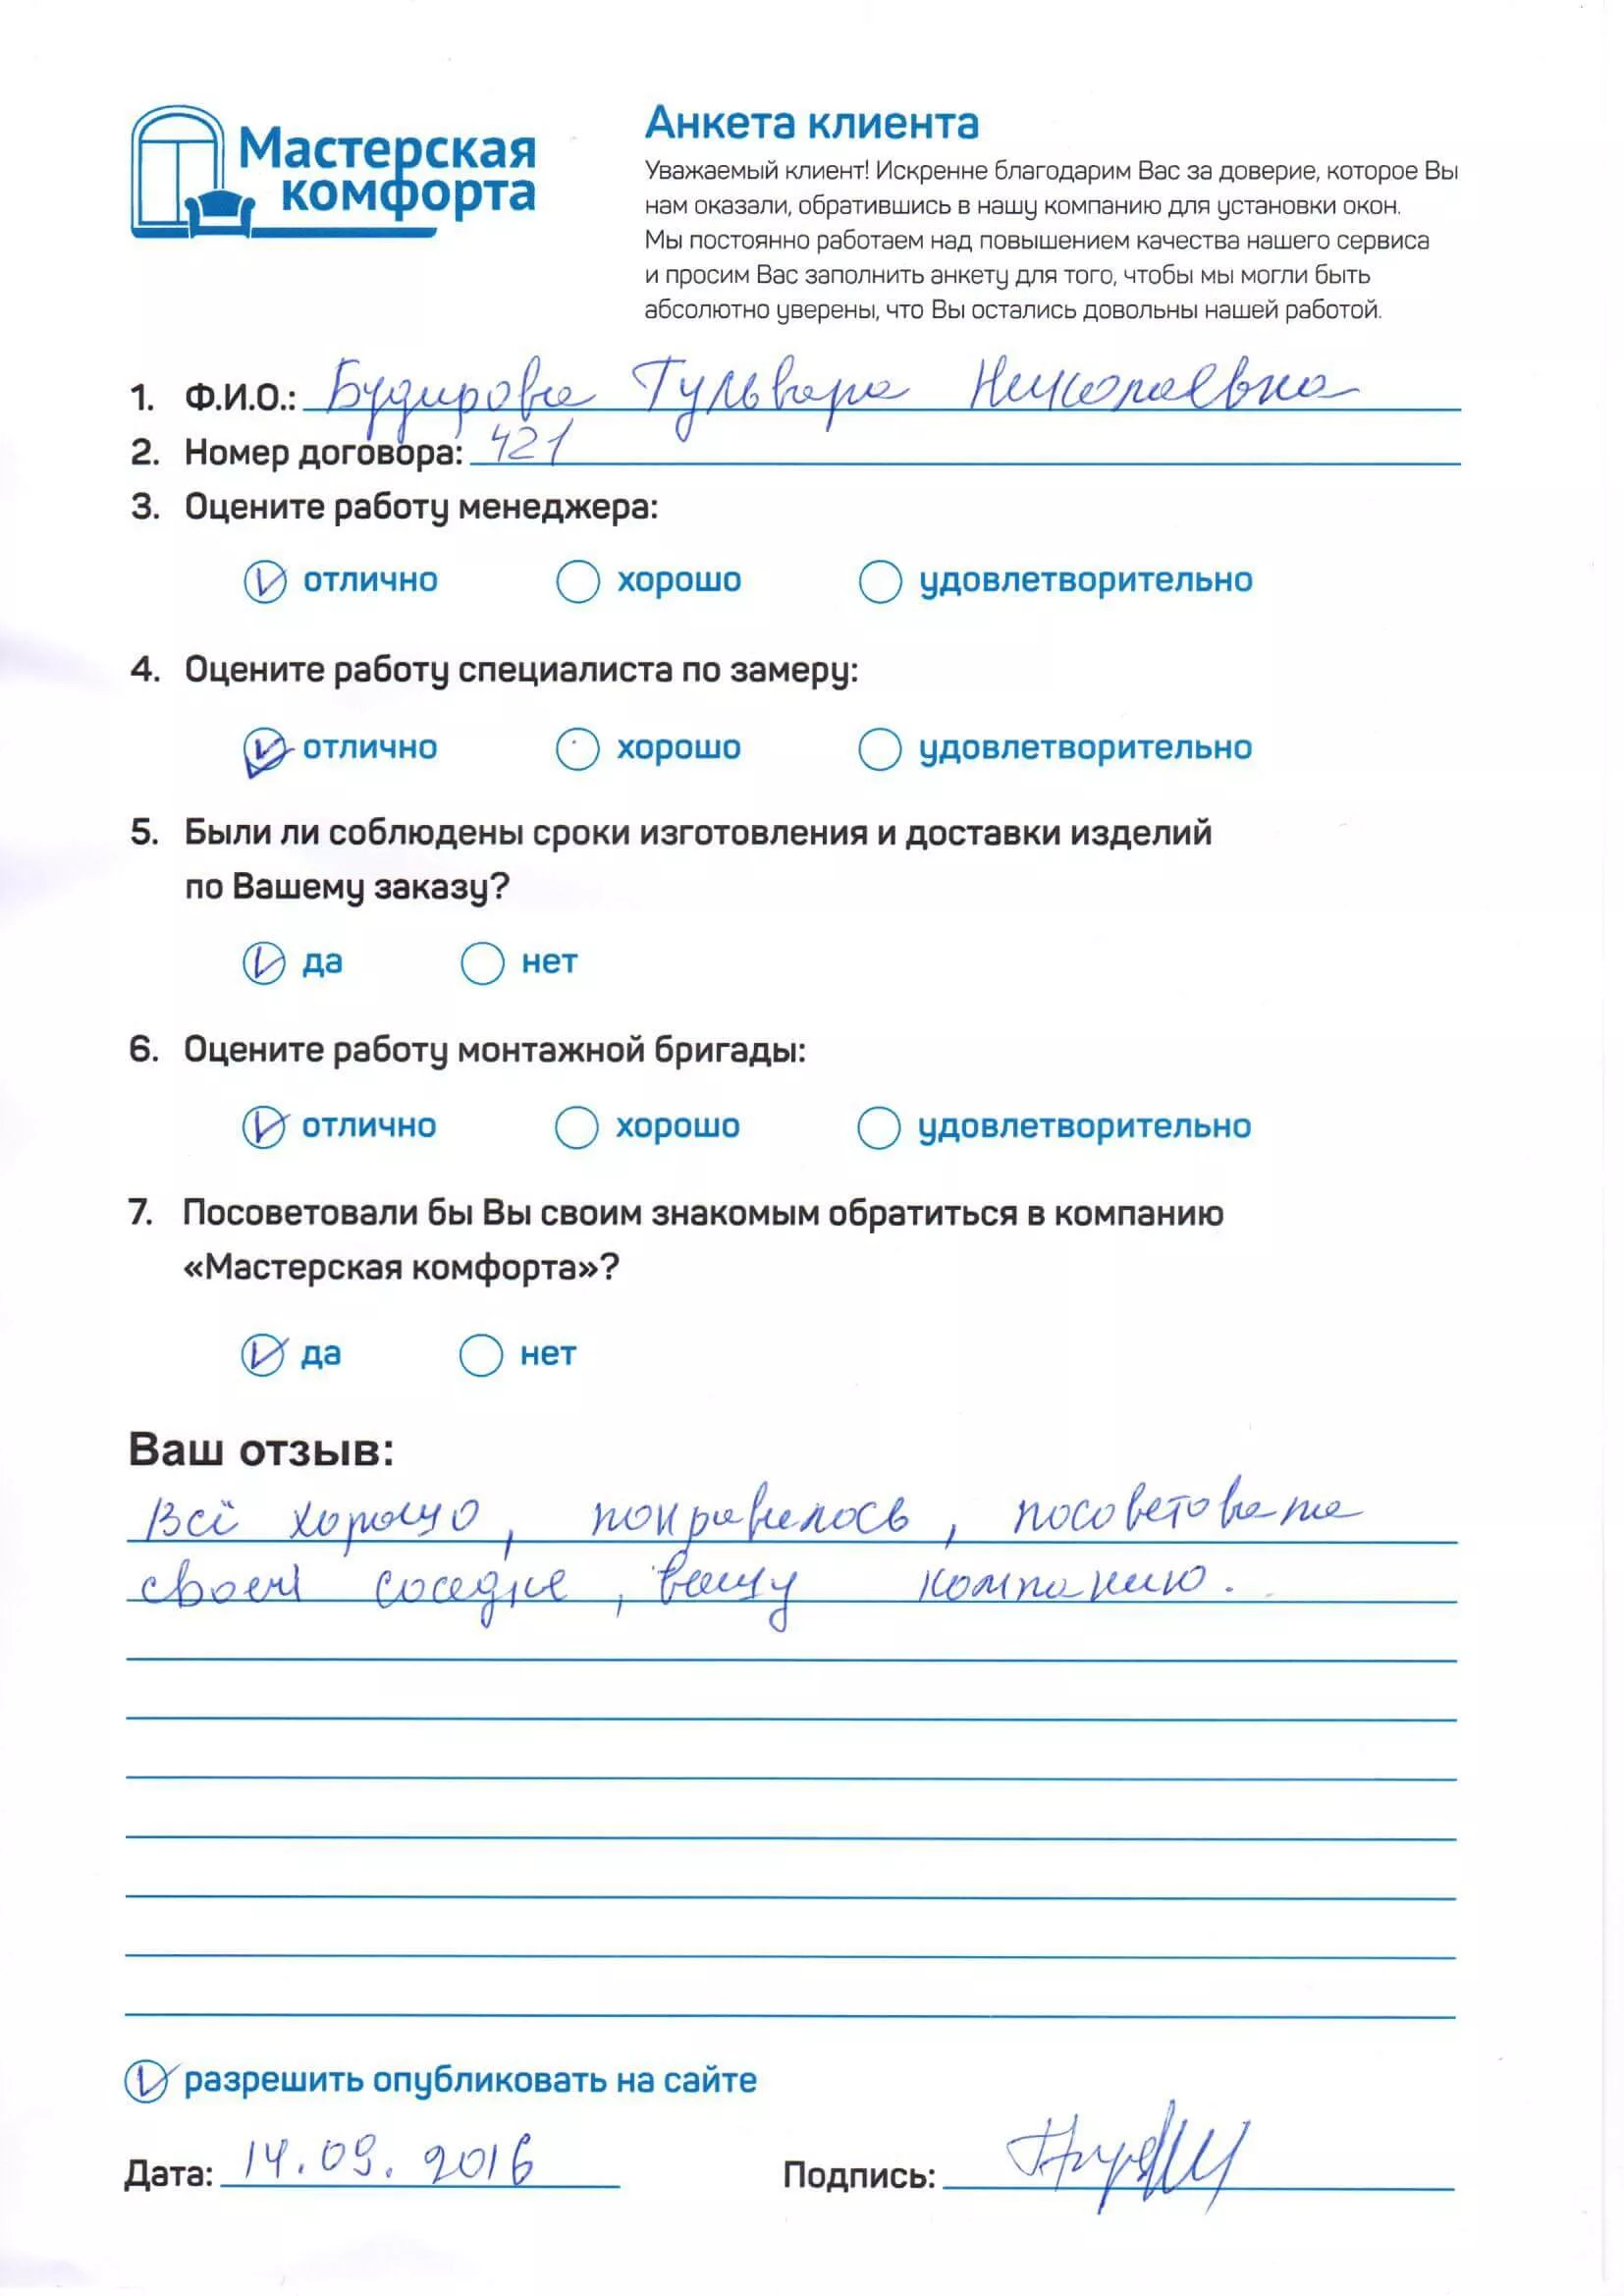 Мастерская
комфорта
Анкета клиента
Уважаемый клиент! Искренне благодарим Вас за доверие, которое Вы
нам оказали, обратившись в нашу компанию для установки окон.
Мы постоянно работаем над повышением качества нашего сервиса
и просим Вас заполнить анкету для того, чтобы мы могли быть
абсолютно уверены, что Вы остались довольны нашей работой.
1. Ф.И.О.: Будирова Гульвара Николаевна
2. Номер договора: 421
3. Оцените работу менеджера:
отлично хорошо удовлетворительно
4. Оцените работу специалиста по замеру:
отлично хорошо удовлетворительно
5. Были ли соблюдены сроки изготовления и доставки изделий
по Вашему заказу?
да нет
6. Оцените работу монтажной бригады:
отлично хорошо удовлетворительно
7. Посоветовали бы Вы своим знакомым обратиться в компанию
«Мастерская комфорта»?
да нет
Ваш отзыв:
Всё хорошо, понравилось, посоветовала
своей соседке, вашу компанию.
разрешить опубликовать на сайте
Дата: 14.09.2016 Подпись: